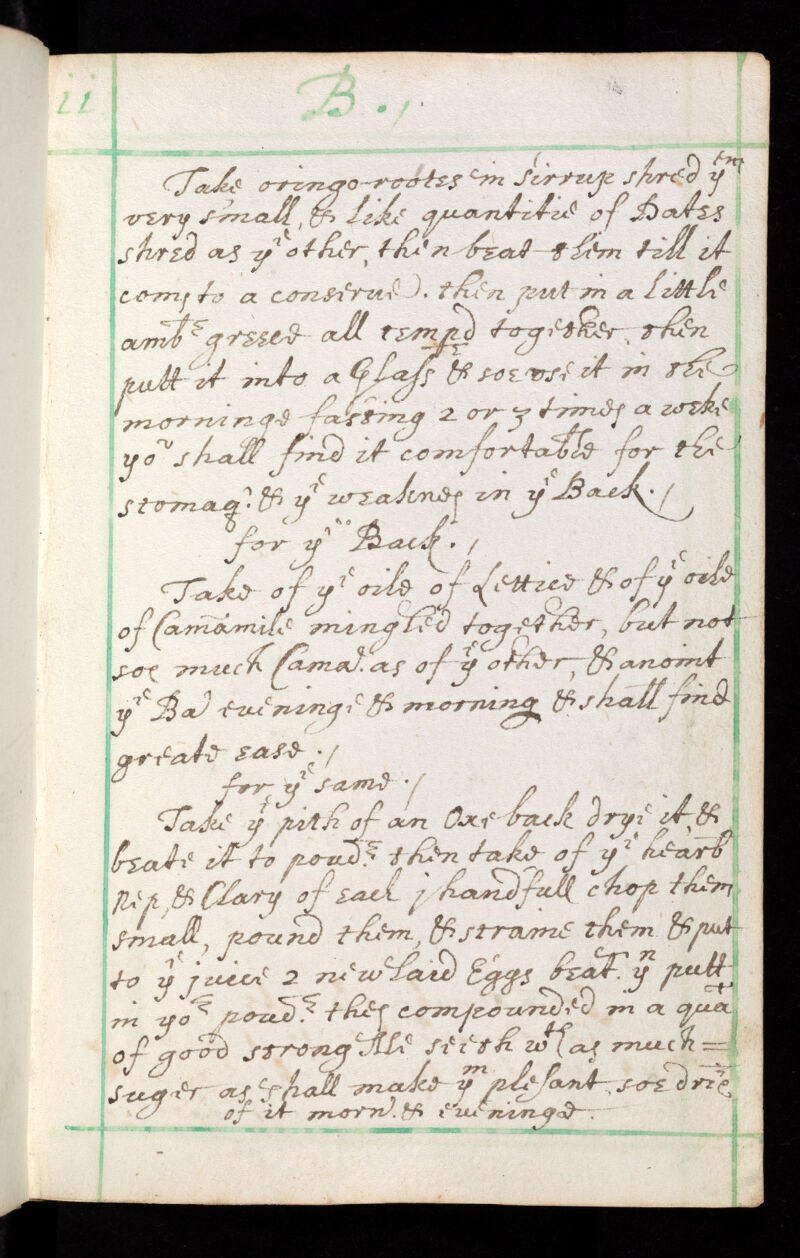 ii B.,
Take oringo-rootes in sirrup shred yᵉᵐ
very small, & like quantitie of Dates
shred as yᵉ other, then beat them till it
comes to a conserve. then put in a little
ambᵉ greece all tempᵈ together, then
putt it into a Glass & soe use it in the
morninge fasting 2 or 3 times a weke
yoᵘ shall find it comfortable for the
stomaq. & yᵉ weaknes in yᵉ Back.,
for yᵉ Back.,
Take of yᵉ oile of Lettice & of yᵉ oile
of Camamile mingled together, but not
soe much Cama. as of yᵉ other, & anoint
yᵉ Ba eveninge & morning & shall find
greate ease.,
for yᵉ same.,
Take yᵉ pith of an Oxe back drye it &
beate it to poudᵉ. then take of yᵉ hearb
Nep, & Clary of each j handfull chop them
small, pound them, & straine them & put
to yᵉ juice 2 new laid Eggs beat. yⁿ putt
in yoᵉ poudᵉ. thes compounded in a qua
of good strong Ale seeth wᵗʰ as much =
suger as shall make yᵐ plesant, soe drīe
of it morn. & eveninge.